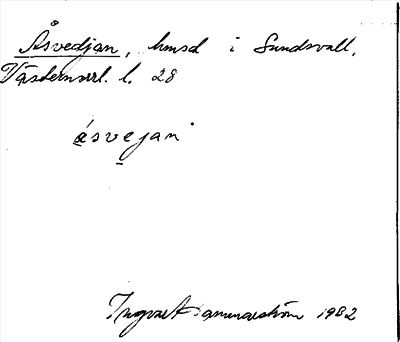 Åsvedjan, hmsd i Sundsvall,
Västernorrl. l. 28
åsvejan
Ingvar Hammarström 1982